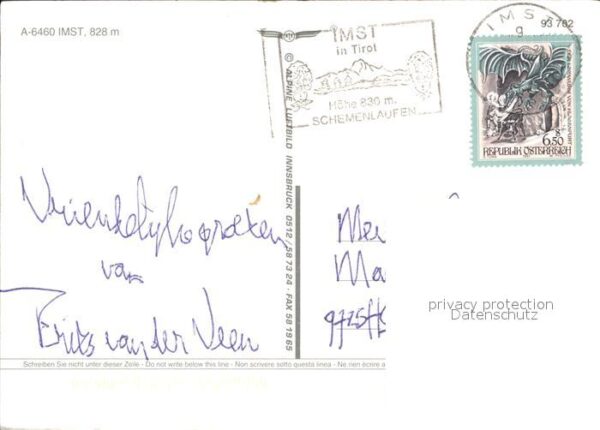 A-6460 IMST, 828 m
93 782
IMST
in Tirol
Höhe 830 m.
SCHEMENLAUFEN
IMST
g
6.50
REPUBLIK ÖSTERREICH
© ALPINE LUFTBILD INNSBRUCK 0512 / 58 73 24 · FAX 58 19 65
Vriendelijke groeten
van
Frits van der Veen
Mei
Ma
privacy protection
Datenschutz
Schreiben Sie nicht unter dieser Zeile - Do not write below this line - Non scrivere sotto questa linea - Ne rien écrire a